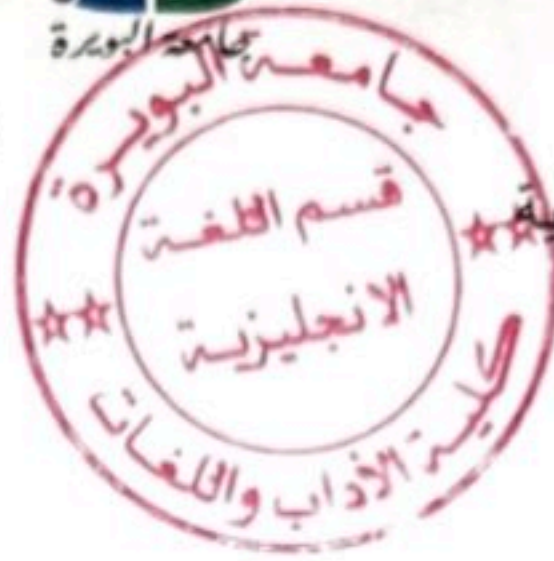 جامعة البويرة
جامعة البويرة
قسم اللغة
الانجليزية
كلية الآداب واللغات